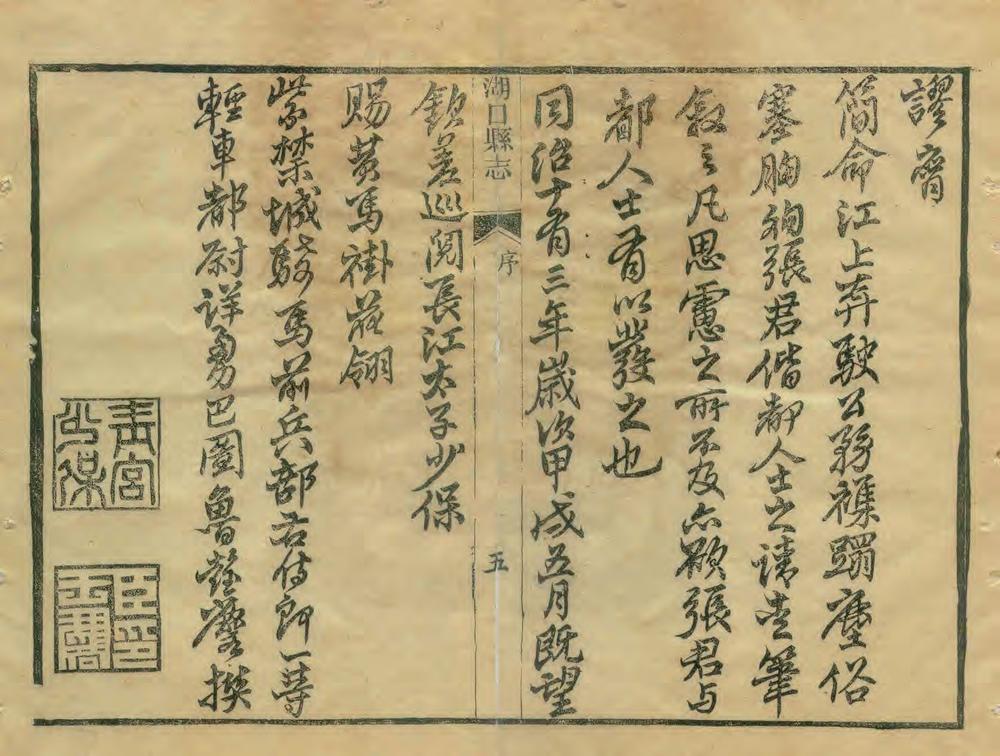 謬膺
簡命江上奔駛公務襍躅塵俗
塞胸徇張君偕都人士之請走筆
敘之凡思慮之所不及亦願張君与
都人士有以發之也
同治十有三年歲次甲戌五月既望
湖口縣志
序
五
欽差巡閱長江太子少保
賜黃馬褂花翎
紫禁城騎馬前兵部右侍郎一等
輕車都尉詳勇巴圖魯彭玉麐撰
青宮少保
臣印玉麐